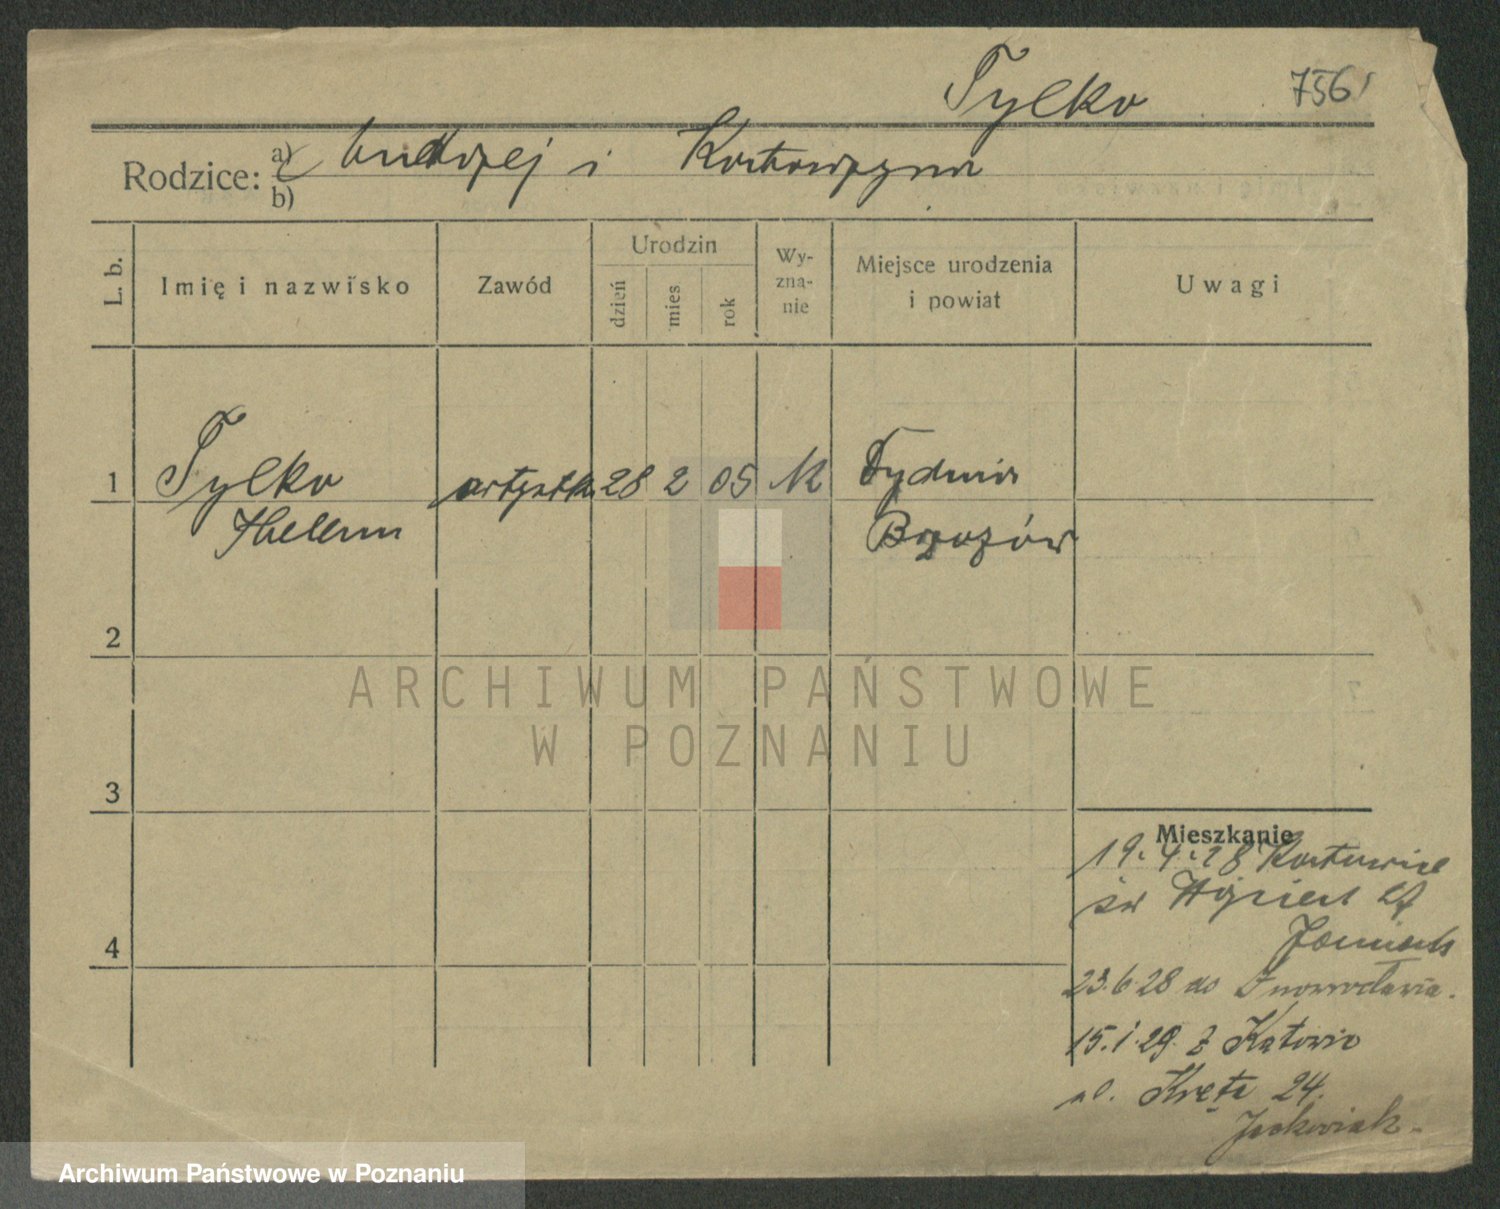 Tylko 756
Rodzice: a) Andrzej i Katarzyna
b)
L. b.
Imię i nazwisko
Zawód
Urodzin
dzień
mies
rok
Wy-
zna-
nie
Miejsce urodzenia
i powiat
Uwagi
1 Tylko artystka 28 2 05 Dydnia
Helena Brzozów
2
3
4
Mieszkanie
19.4.28 Katowice
św Wojciech 27
23.6.28 do Inowrocławia.
15.1.29 z Katowic
ul. Kręta 24.
Jackowiak.
ARCHIWUM PAŃSTWOWE
W POZNANIU
Archiwum Państwowe w Poznaniu